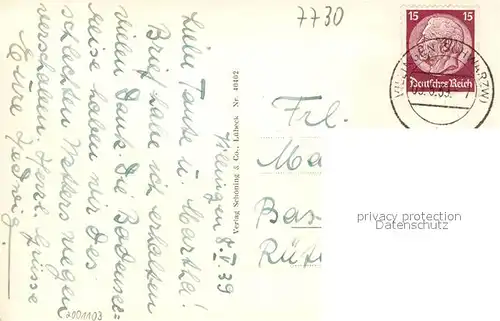 7730
15 15
Deutsches Reich
VILLINGEN (SCHWARZW)
Villingen 8.V.39
Liebe Tante u. Martha!
Brief habe ich erhalten
vielen Dank. Die Bodensee=
reise haben wir des
schlechten Wetters wegen
verschoben. Herzl. Grüsse
Eure Hedwig.
Verlag Schöning & Co., Lübeck Nr. 40402
Frl.
Ma
Bas
Rüt
privacy protection
Datenschutz
2001103